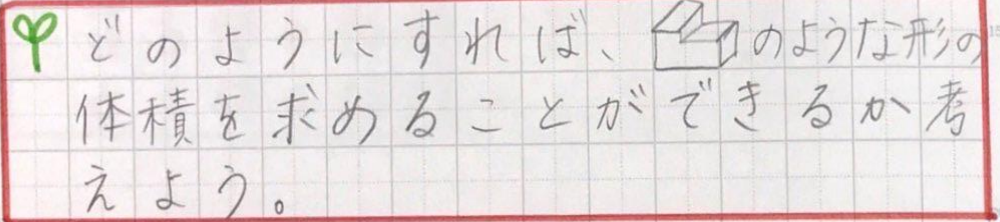 どのようにすれば、のような形の
体積を求めることができるか考
えよう。